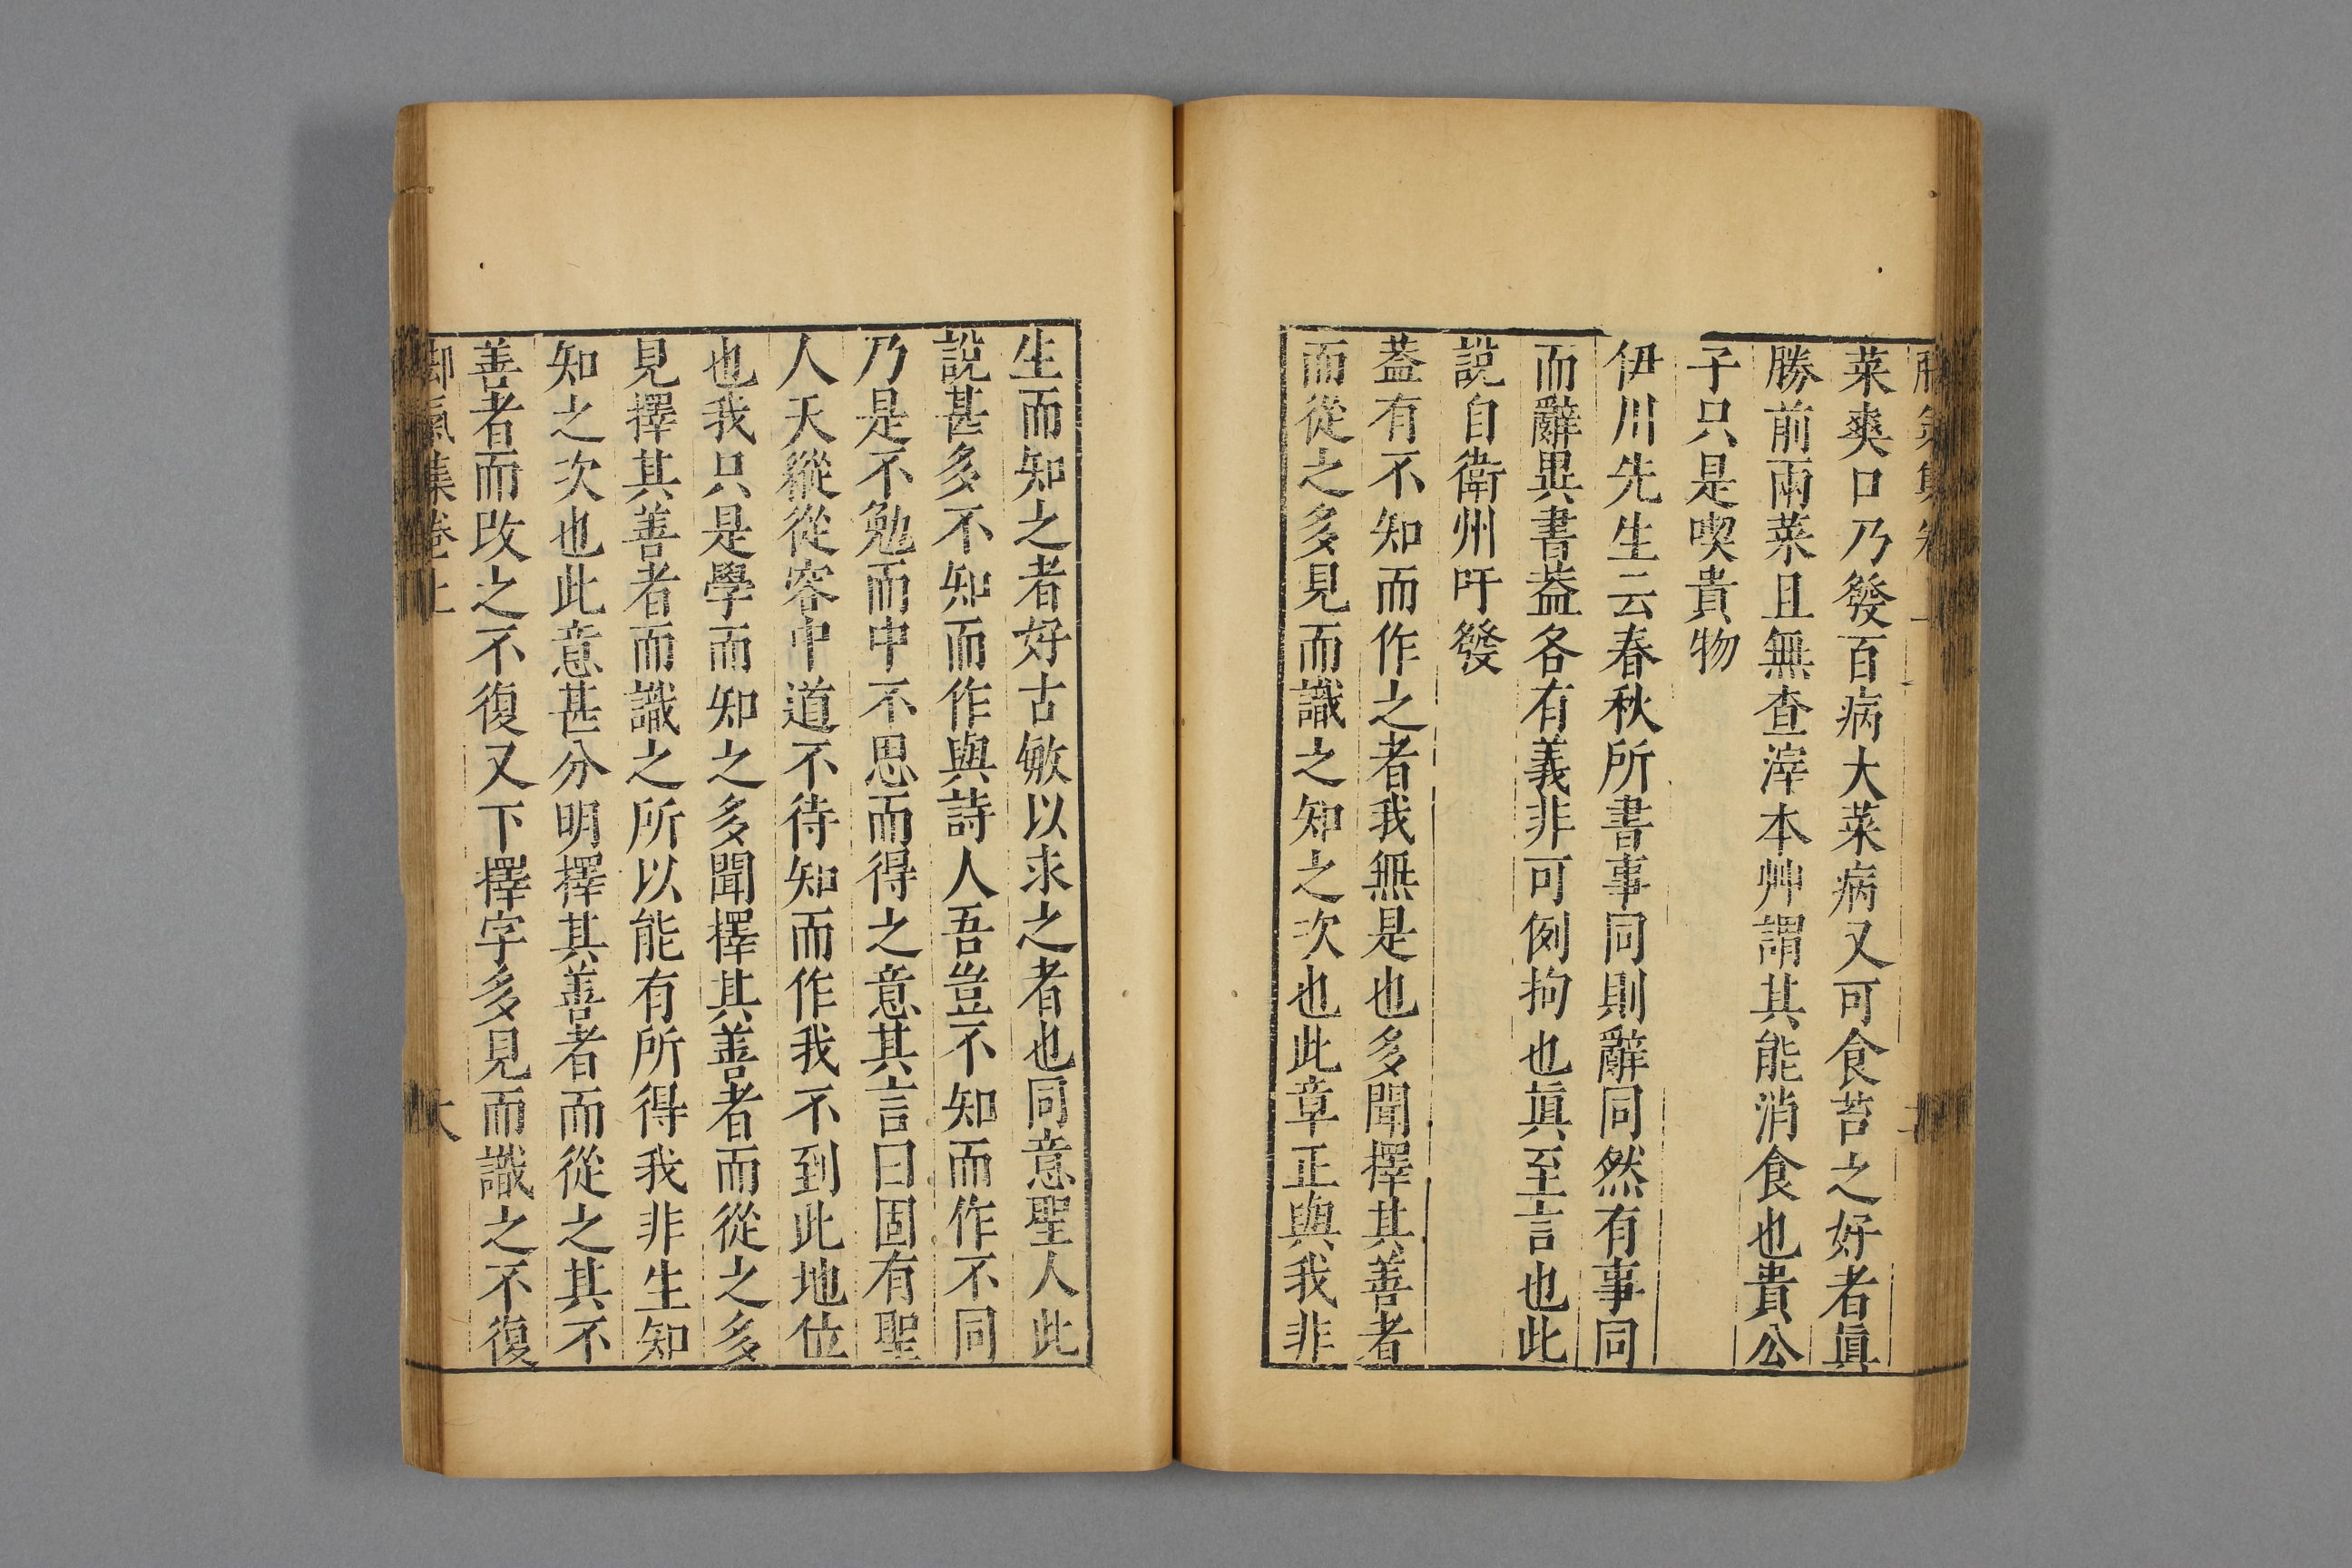 菜爽口乃發百病大菜病又可食苔之好者眞
勝前兩菜且無查滓本艸謂其能消食也貴公
子只是喫貴物
伊川先生云春秋所書事同則辭同然有事同
而辭異書葢各有義非可例拘也眞至言也此
說自衛州吁發
葢有不知而作之者我無是也多聞擇其善者
而從之多見而識之知之次也此章正與我非
生而知之者好古敏以求之者也同意聖人此
說甚多不知而作與詩人吾豈不知而作不同
乃是不勉而中不思而得之意其言曰固有聖
人天縱從容中道不待知而作我不到此地位
也我只是學而知之多聞擇其善者而從之多
見擇其善者而識之所以能有所得我非生知
知之次也此意甚分明擇其善者而從之其不
善者而改之不復又下擇字多見而識之不復
腳氣集卷上